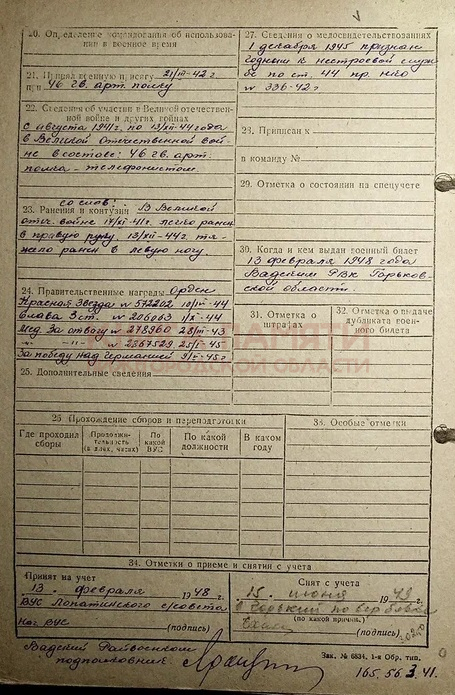 20. Определение командования об использова-
нии в военное время
21. Принял военную присягу 21/III-42 г.
при 46 гв. арт. полку
22. Сведения об участии в Великой отечествен-
ной войне и других войнах
с августа 1941 г. по 13/XII-44 года
в Великой Отечественной вой-
не в составе: 46 гв. арт.
полка - телефонистом
со слов:
23. Ранения и контузии В Великой
отеч. войне 17/XI-41 г. легко ранен
в правую руку, 13/XII-44 г. тя-
жело ранен в левую ногу.
24. Правительственные награды Орден
Красная Звезда № 572202 10/III-44
Слава 3 ст. № 206063 1/X-44
Мед. За отвагу № 278960 28/III-43
№ 2267529 25/I-45
За победу над Германией 9/V-45 г.
25. Дополнительные сведения
26. Прохождение сборов и переподготовки
Где проходил сборы
Продолжи-
тельность
(в днях, часах)
По какой ВУС
По какой должности
В каком году
27. Сведения о медосвидетельствованиях
1 декабря 1945 признан
годным к нестроевой служ
бе по ст. 44 пр. НКО
№ 336-42 г.
28. Приписан к
в команду №
29. Отметка о состоянии на спецучете
30. Когда и кем выдан военный билет
13 февраля 1948 года
Вадским РВК Горьков-
ской области.
31. Отметка о
штрафах
32. Отметка о выдаче
дубликата воен-
ного билета
33. Особые отметки
ПАМЯТИ
ОБЛАСТИ
34. Отметки о приеме и снятии с учета
Принят на учет
13. февраля 1948 г.
ВУС Лопатинского с/совета
Нач ВУС
(подпись)
Снят с учета
15. июня 1949 г.
в Горький по вербовке
(по какой причине)
(подпись)
Вадский Райвоенком
подполковник
Зак. № 6834. 1-я Обр. тип.
165.56.3.41.